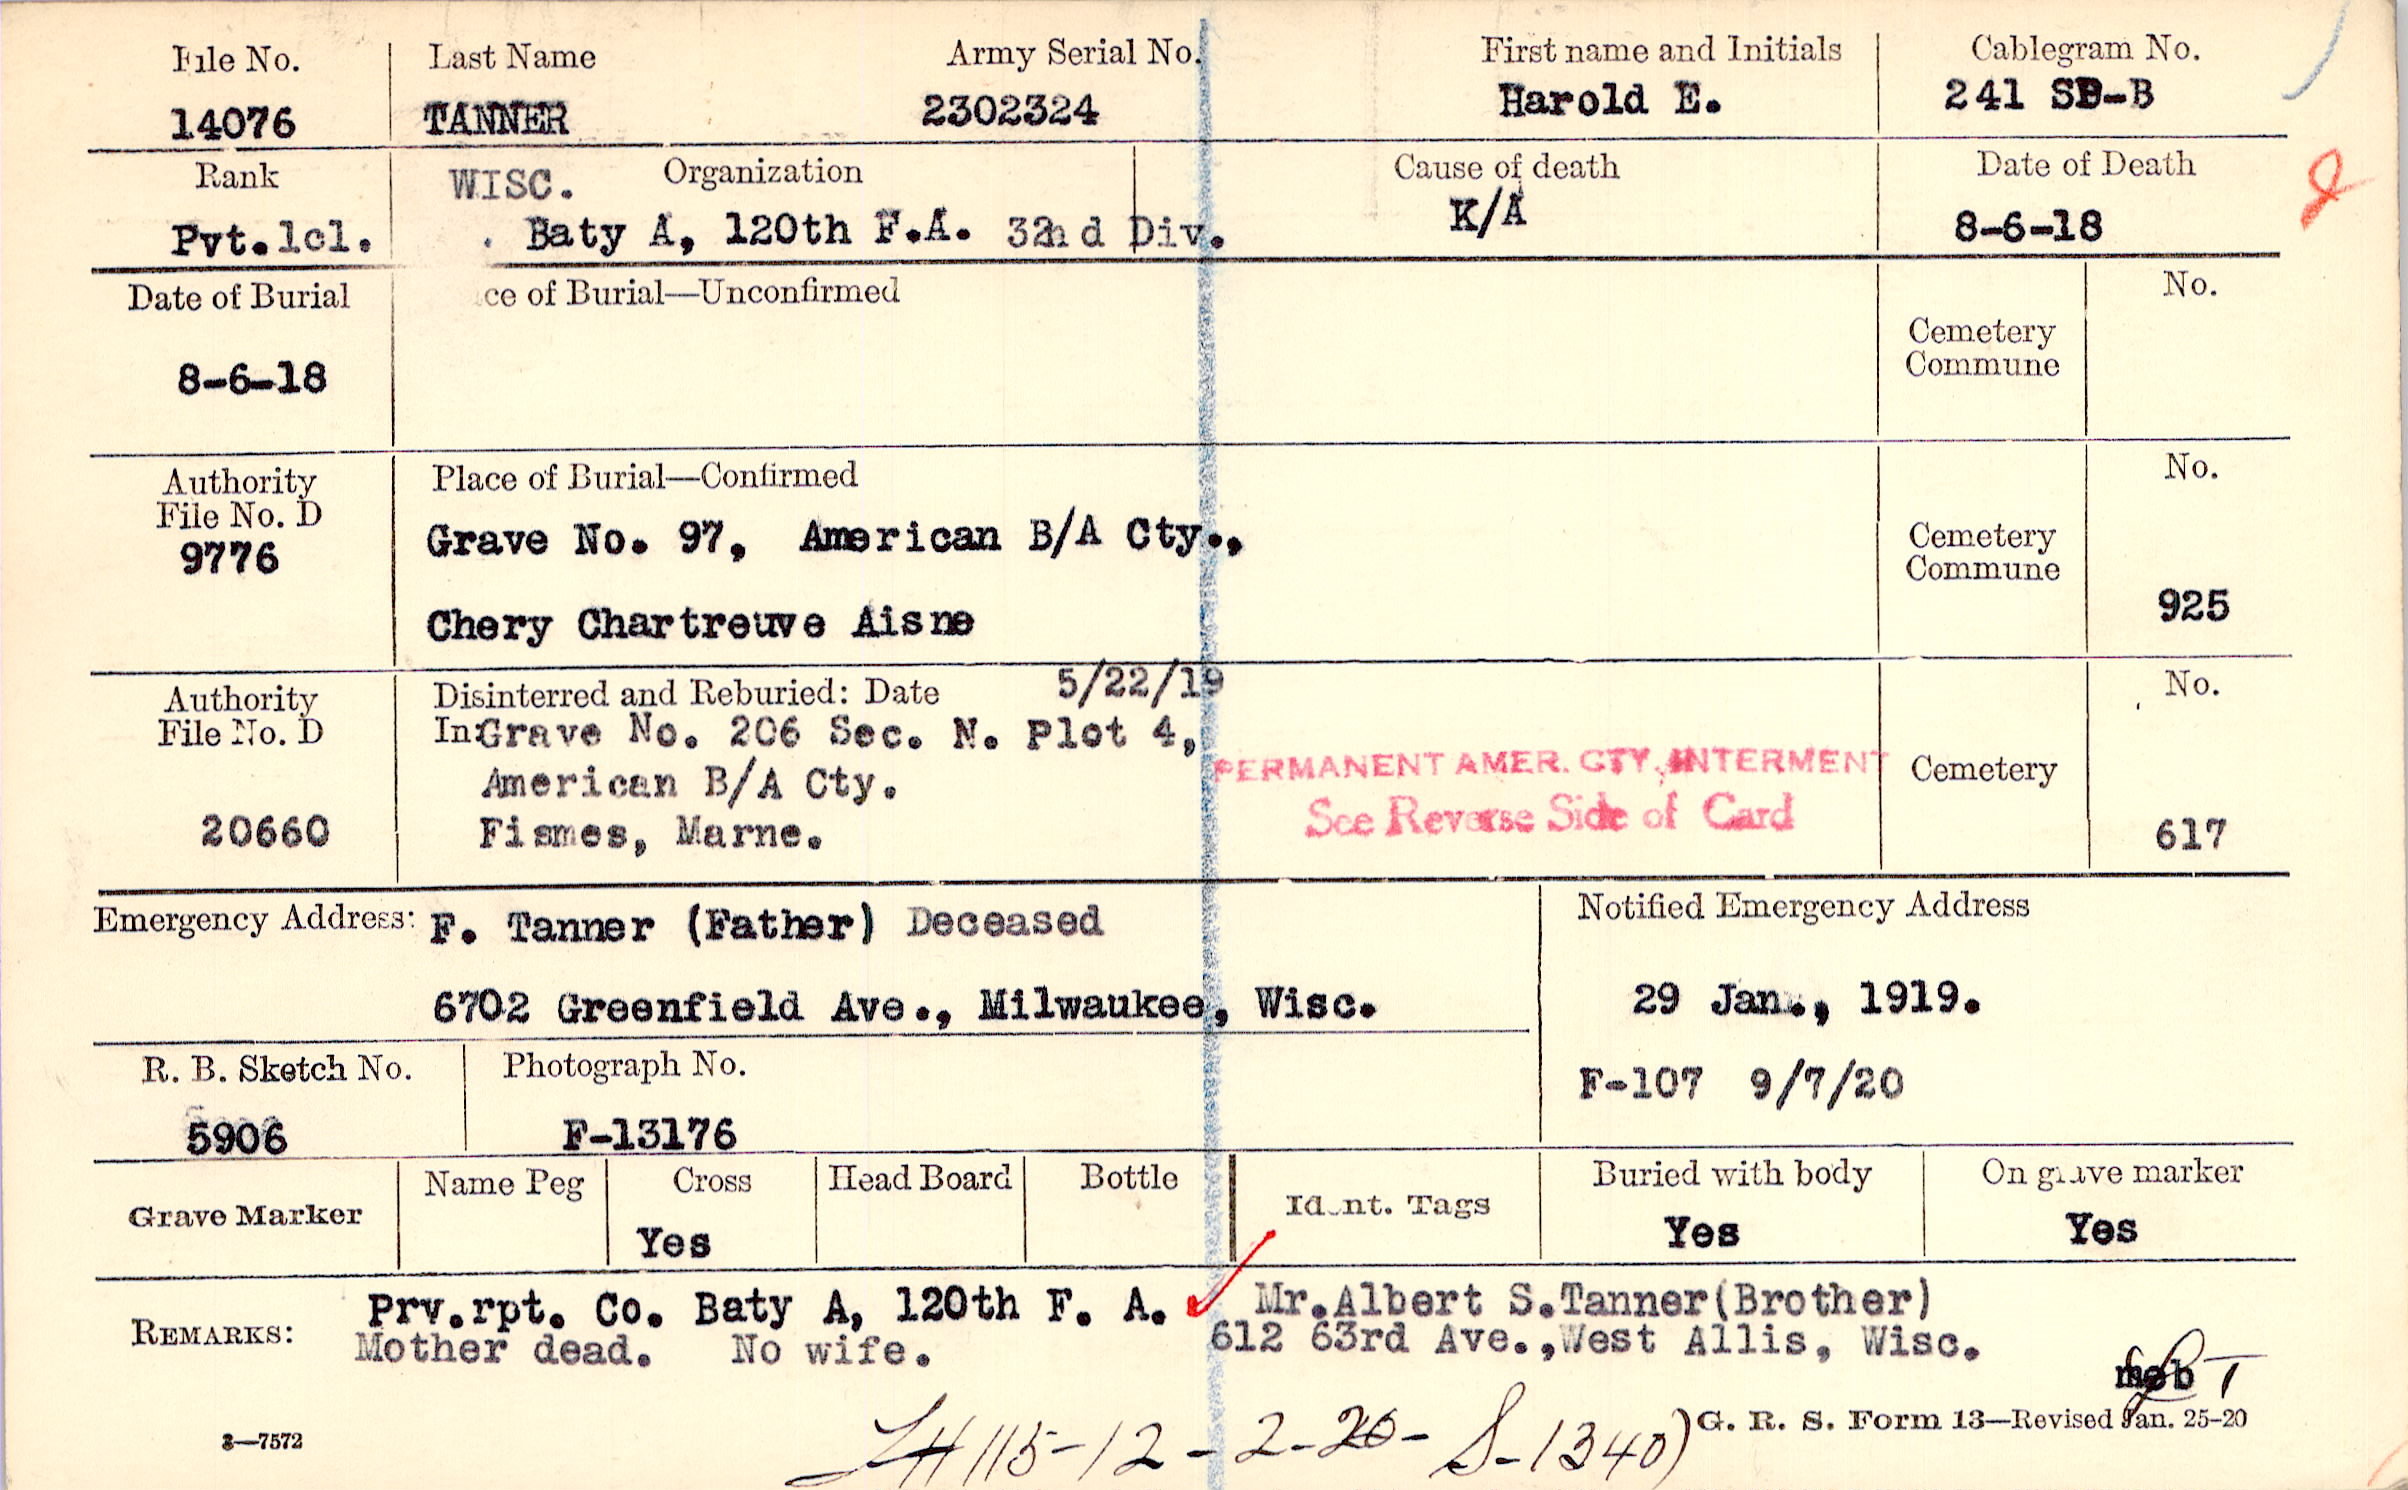 File No. Last Name Army Serial No. First name and Initials Cablegram No.
14076 TANNER 2302324 Harold E. 241 SD-B
Rank WISC. Organization Cause of death Date of Death
Pvt.1cl. Baty A, 120th F.A. 32nd Div. K/A 8-6-18
Date of Burial ce of Burial—Unconfirmed No.
8-6-18 Cemetery
Commune
Authority Place of Burial—Confirmed No.
File No. D Grave No. 97, American B/A Cty., Cemetery
9776 Commune
Chery Chartreuve Aisne 925
Authority Disinterred and Reburied: Date 5/22/19 No.
File No. D In: Grave No. 206 Sec. N. Plot 4,
PERMANENT AMER. CTY. INTERMENT Cemetery
American B/A Cty.
See Reverse Side of Card
20660 Fismes, Marne. 617
Emergency Address: F. Tanner (Father) Deceased Notified Emergency Address
6702 Greenfield Ave., Milwaukee, Wisc. 29 Jan., 1919.
R. B. Sketch No. Photograph No. F-107 9/7/20
5906 F-13176
Grave Marker Name Peg Cross Head Board Bottle Ident. Tags Buried with body On grave marker
Yes Yes Yes
REMARKS: Prv.rpt. Co. Baty A, 120th F. A. Mr.Albert S.Tanner(Brother)
Mother dead. No wife. 612 63rd Ave.,West Allis, Wisc.
3—7572 G. R. S. Form 13—Revised Jan. 25-20
115-12-2-20- S-1340)